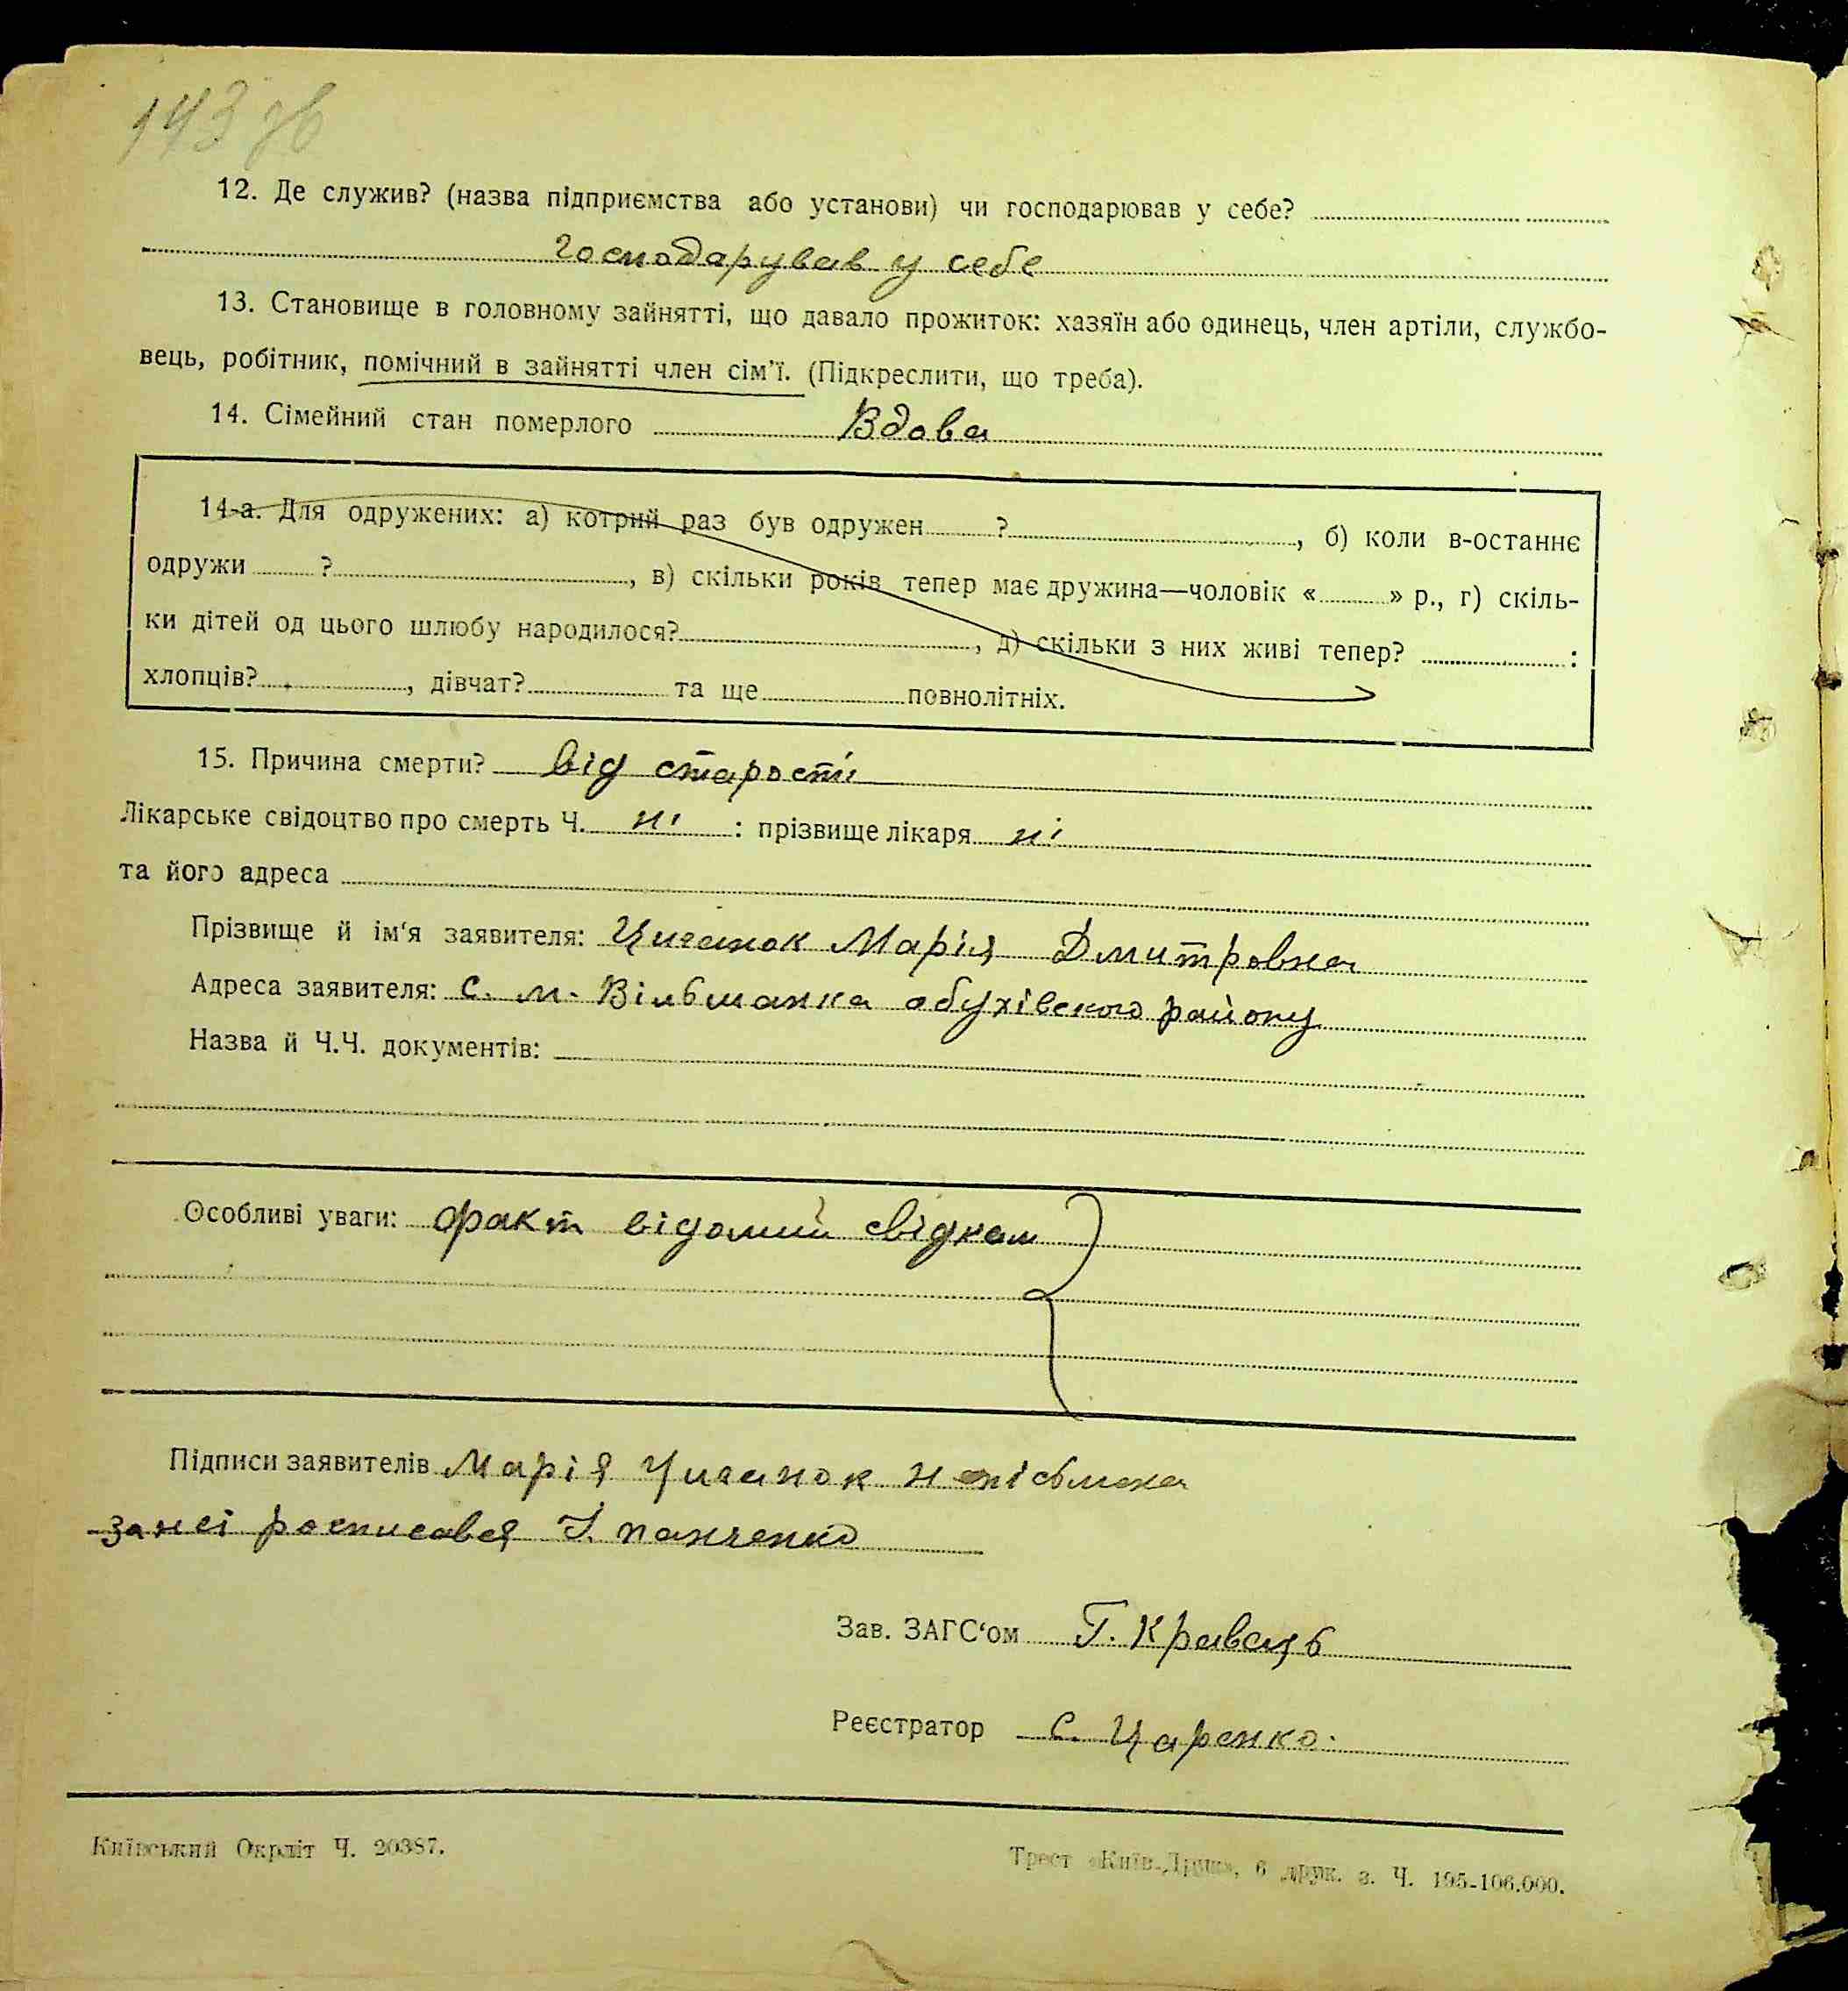 143 зв
12. Де служив? (назва підприємства або установи) чи господарював у себе?
Господарував у себе
13. Становище в головному зайнятті, що давало прожиток: хазяїн або одинець, член артіли, службо-
вець, робітник, помічний в зайнятті член сім'ї. (Підкреслити, що треба).
14. Сімейний стан померлого Вдова
14-а. Для одружених: а) котрий раз був одружен ? , б) коли в-останнє
одружи ? , в) скільки років тепер має дружина—чоловік « » р., г) скіль-
ки дітей од цього шлюбу народилося? , д) скільки з них живі тепер? :
хлопців? , дівчат? та ще повнолітніх.
15. Причина смерти? від старости
Лікарське свідоцтво про смерть Ч. ні : прізвище лікаря ні
та його адреса
Прізвище й ім'я заявителя: Циганок Марія Дмитровна
Адреса заявителя: с. м. Вільшанка обухівского району
Назва й Ч.Ч. документів:
Особливі уваги: факт відомий свідкам
Підписи заявителів Марія Циганок непісьмена
за неі росписався І. панченко
Зав. ЗАГС'ом Г. Кравець
Реєстратор С. Царенко.
Київський Окрліт Ч. 20387.
Трест «Київ-Друк», 6 друк. з. Ч. 195-106.000.